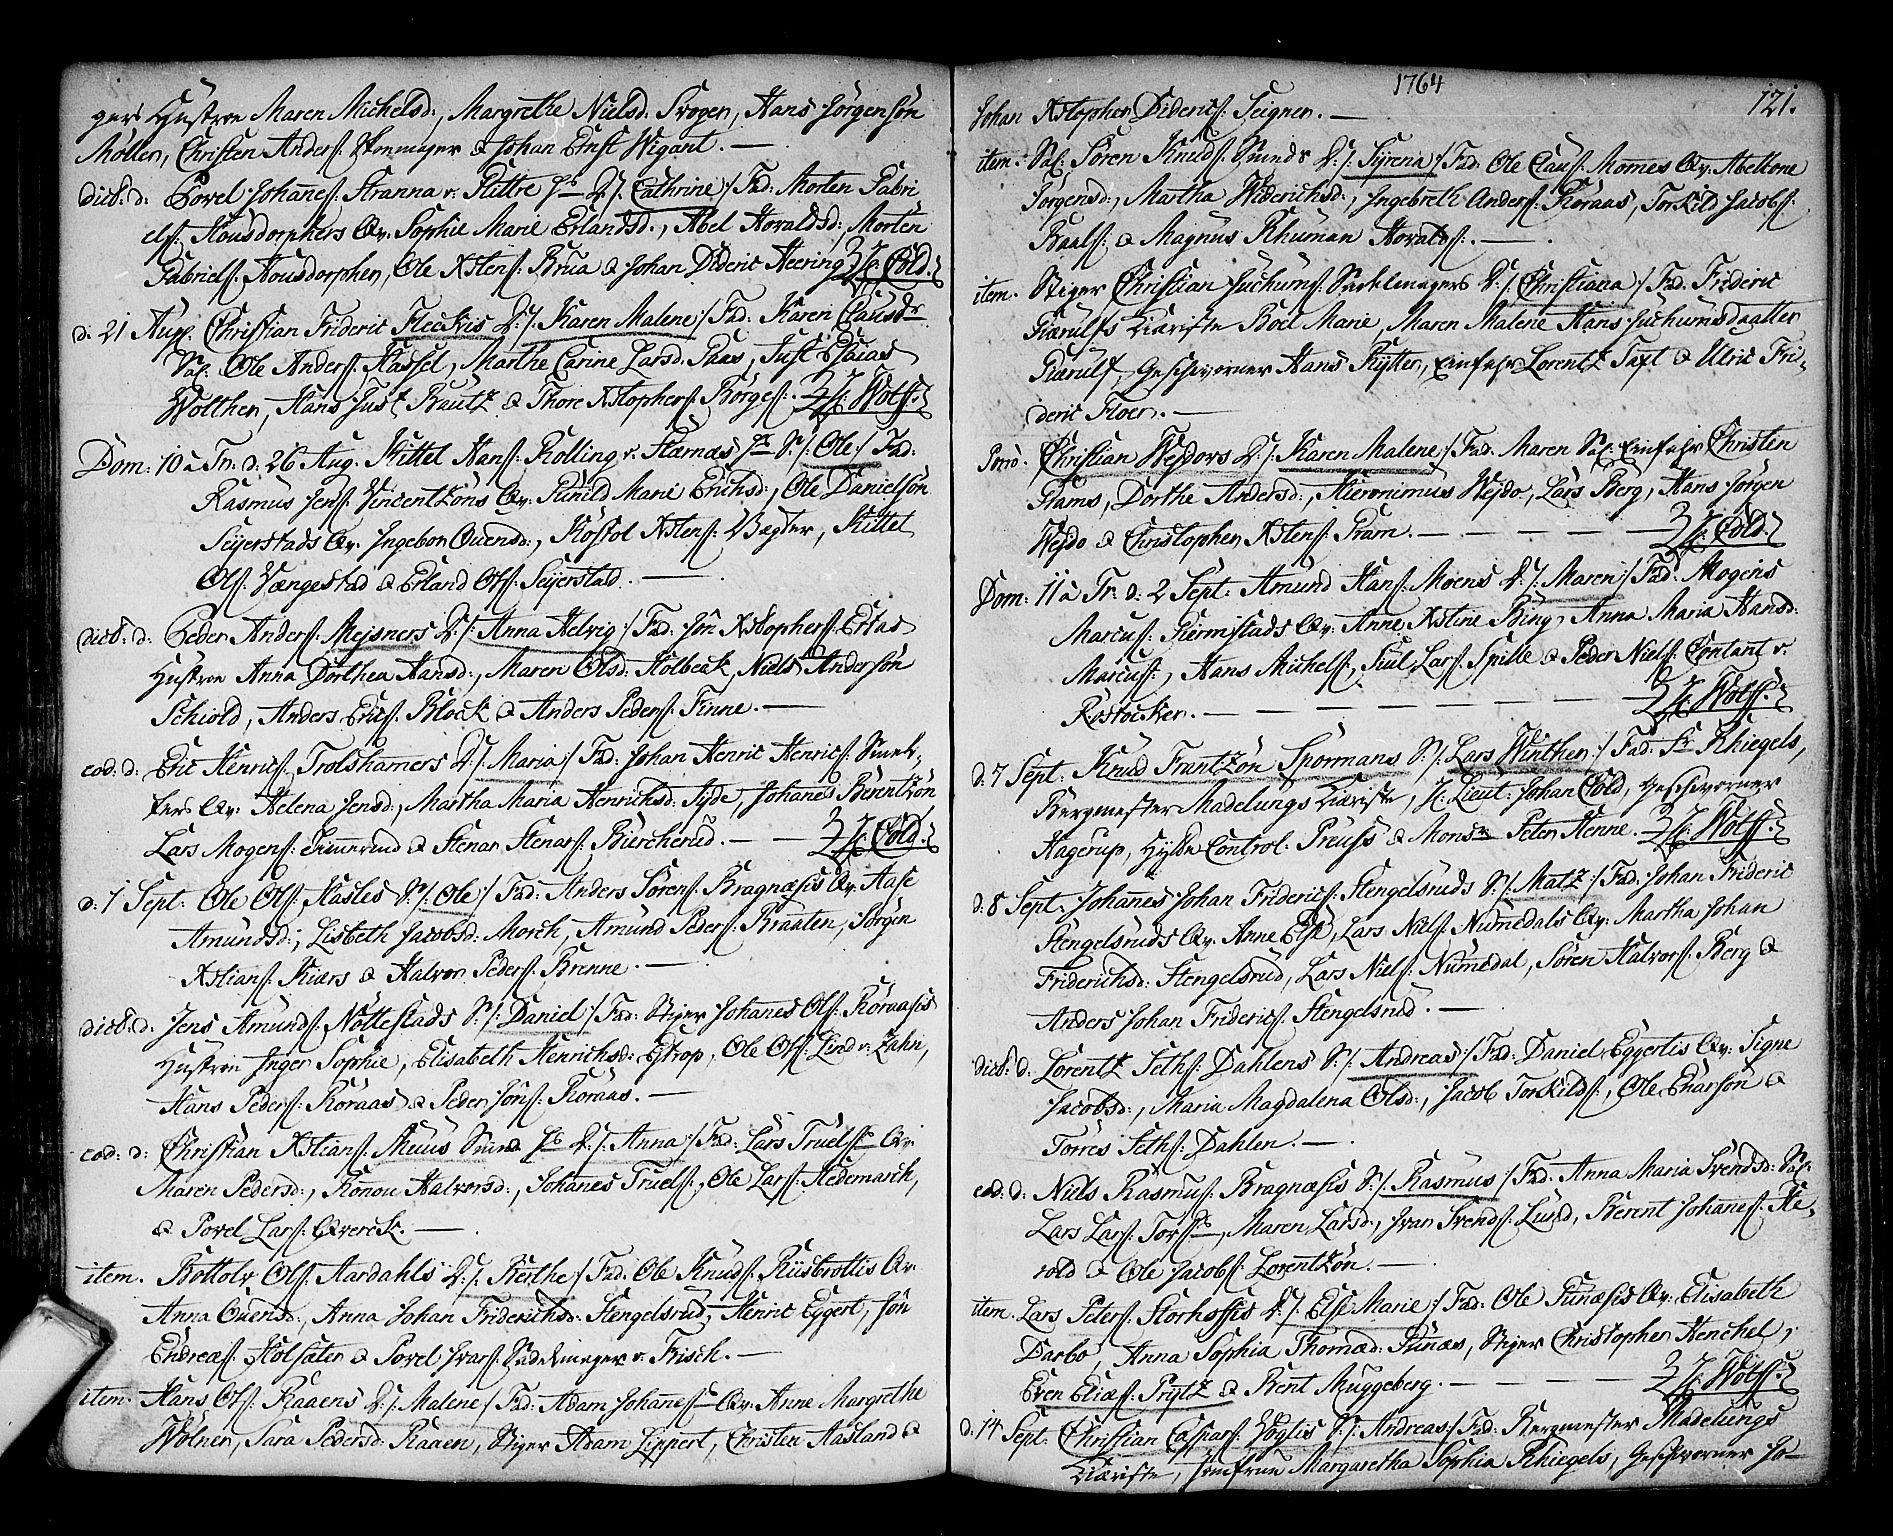 gers Hustroe Maren Michelsd:, Margrethe Nielsd. Svogen, Hans Jörgensön
Möller, Christen Anders: Skomager & Johan Ernst Wigant. —
dict: d: Povel Johañes: Stranna v. Skittre D./. Cathrine ./. Fad: Morten Gabri
els: Housdorphers Qv: Sophie Marie Erlandsd., Abel Horaldsd:, Morten
Gabriels: Housdorpher, Ole Xstens: Brua & Johan Dideric Heering H: Cold.
d. 21 Aug. Christian Frideric Fleckis D./. Karen Malene ./. Fad: Karen Clausdr
Sal: Ole Anders: Hassel, Marthe Carine Larsd. Paas, Just Elsias
Wolther, Hans Just Bautz & Thore Xstophers: Börges. H: Wolff.
Dom: 10 à Tr. d: 26 Aug. Kittel Hans: Rolling v. Skærnæs S./. Ole ./. Fad:
Rasmus Jens: Vincentzöns Qv: Gunild Marie Erichsd:, Ole Danielsön
Seijerstads Qv: Ingebor Ouensd:, Kostol Xstens: Vægter, Kittel
Ols: Vængestad & Erland Ols: Seijerstad. —
dict: d: Peder Anders: Mejsners D./. Anna Helvig ./. Fad: Jön Xstophers: Ertas
Hustroe Anna Dorthea Hansd:, Maren Olsd: Holbeck, Niels Andersön
Schiold, Anders Erics: Block & Anders Peders: Finne. —
eod: d: Eric Henrics: Trolshamers D./. Maria ./. Fad: Johan Henric Henrics: Smel-
ters Qv: Helena Jensd:, Martha Maria Henrichsd: Syde, Johañes Berentzön
Lars Mogens: & Stenar Stenars: Biercherud. — H: Cold.
d: 1 Sept: Ole Ols: Hasles S./. Ole ./. Fad: Anders Sörens: Bragnæsis Qv: Aase
Amundsd:, Lisbeth Jacobsd: Morch, Amund Peders: Braaten, Jörgen
Xstians: Kiærs & Halvor Peders: Brenne. —
dict: d: Jens Amunds: Nöttestads S./. Daniel ./. Fad: Stiger Johañes Ols: Röraasis
Hustroe Inger Sophie, Elisabeth Henrichsd: Estrop, Ole Ols: Lind v. Zahn,
Hans Peders: Röraas & Peder Jöns: Röraas. —
eod: d: Christian Xstians: Muus Smed D./. Anna ./. Fad: Lars Truels: Qv:
Maren Pedersd:, Rönou Halvorsd:, Johañes Truels:, Ole Lars: Hedemarck,
& Povel Lars: Qverck. —
item. Bottolv Ols: Aardahls D./. Berthe ./. Fad. Ole Knuds: Riisbrottis Qv:
Anna Ouensd:, Anna Johan Friderichsd: Stengelsrud, Henric Eggert, Jön
Endreas: Holsæter & Povel Ivars: Sadelmager v. Frisch. —
item. Hans Ols: Kaaens D./. Malene ./. Fad: Adam Johañes: Qv: Anne Margrethe
Wölner, Sara Pedersd: Kaaen, Stiger Adam Lippert, Christen Aasland &
1764
121.
Johan Xstopher Diderics: Seigner. —
item. Sal: Sören Knuds: Sunds D./. Syrena ./. Fad. Ole Claus: Momes Qv: Abelkone
Jörgensd:, Martha Widerichsd:, Ingebreth Anders: Röraas, Torkild Jacobs:
Baals: & Magnus Rhuman Horalds:. —
item. Stiger Christian Juchums: Sachlmagers D./. Christiana ./. Fad. Frideric
Giærulfs Kiæriste Boel Marie, Maren Malene Hans Juchumsdaatter
Giærulf, Geschworner Hans Rytter, Einfahr Lorentz Taxt & Ulric Fri-
deric Floer. —
Christian Wejdors D./. Karen Malene ./. Fad. Maren Sal: Einfahr Christen
Grams, Dorthe Andersd:, Hieronimus Wejdo, Lars Berg, Hans Jörgen
Wejdo & Christopher Xstens: Gram. — H: Cold.
Dom: 11 à Tr: d: 2 Sept: Amund Hans: Moens D./. Maren ./. Fad: Mogens
Marcus: Giermstads Qv: Anne Xstine Bing, Anna Maria Hansd:
Marcus:, Hans Michels:, Juul Lars: Spille & Peder Niels: Contant v.
Rostocker. — H: Wolff.
d: 7 Sept: Knud Frantzön Spormans S./. Lars Winther ./. Fad: Fr Rhiegels,
Bergmester Madelungs Kiæriste, H: Lieut: Johan Cold, Geschworner
Hagerup, Hytte Control: Preuss & Monsr Peter Henne. H: Wolff.
d: 8 Sept: Johañes Johan Friderics: Stengelsruds S./. Matz ./. Fad: Johan Frideric
Stengelsruds Qv: Anne Else, Lars Niels: Numedals Qv: Martha Johan
Friderichsd: Stengelsrud, Lars Niels: Numedal, Sören Halvors: Berg &
Anders Johan Friderics: Stengelsrud. —
dict: d: Lorentz Seths: Dahlens S./. Andreas ./. Fad: Daniel Eggertis Qv: Signe
Jacobsd:, Maria Magdalena Olsd:, Jacob Torkilds:, Ole Enarsön &
Torres Seths: Dahlen. —
eod: d: Niels Rasmus: Bragnæsis S./. Rasmus ./. Fad. Anna Maria Svendsd: Sal:
Lars Lars: Tors, Maren Larsd:, Ivar Svends: Lund, Berent Johañes: He-
rold & Ole Jacobs: Lorentzön. —
item. Lars Peters: Storhoffis D./. Else Marie ./. Fad: Ole Funæsis Qv: Elisabeth
Darbo, Anna Sophia Thomæd: Funæs, Stiger Christopher Henchel,
Even Elias: Prytz & Brent Muggeberg. — H: Wolff.
d. 14 Sept: Christian Caspars: Voglis S./. Andreas ./. Fad: Bergmester Madelungs
Kiæriste, Jomfrue Margaretha Sophia Rhiegels, Geschworner Jo-